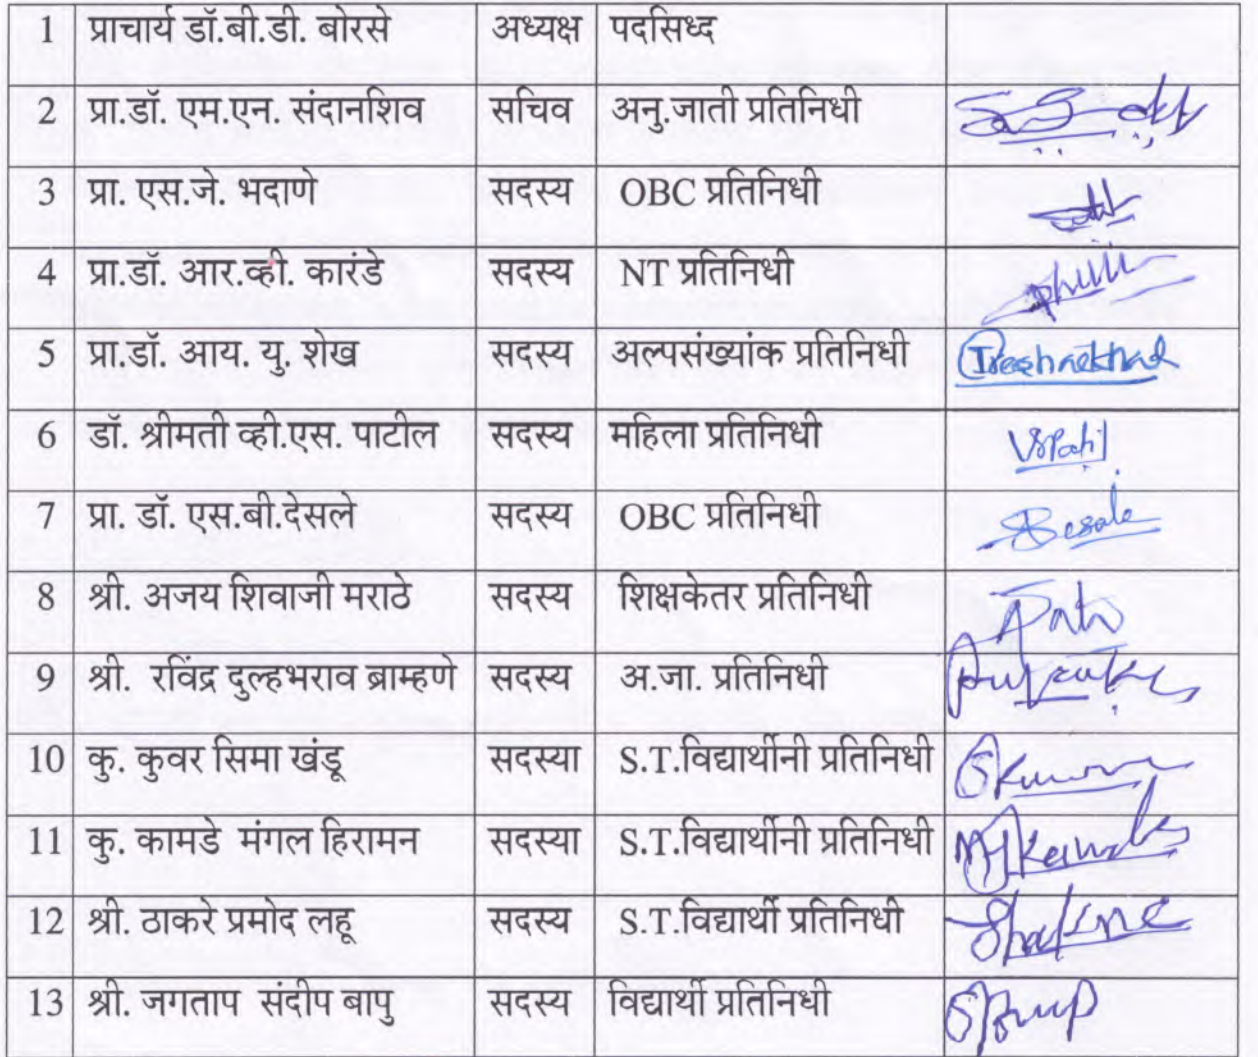 1 प्राचार्य डॉ.बी.डी. बोरसे अध्यक्ष पदसिध्द
2 प्रा.डॉ. एम.एन. संदानशिव सचिव अनु.जाती प्रतिनिधी
3 प्रा. एस.जे. भदाणे सदस्य OBC प्रतिनिधी
4 प्रा.डॉ. आर.व्ही. कारंडे सदस्य NT प्रतिनिधी
5 प्रा.डॉ. आय. यु. शेख सदस्य अल्पसंख्यांक प्रतिनिधी
6 डॉ. श्रीमती व्ही.एस. पाटील सदस्य महिला प्रतिनिधी VSPatil
7 प्रा. डॉ. एस.बी.देसले सदस्य OBC प्रतिनिधी SDesale
8 श्री. अजय शिवाजी मराठे सदस्य शिक्षकेतर प्रतिनिधी
9 श्री. रविंद्र दुल्हभराव ब्राम्हणे सदस्य अ.जा. प्रतिनिधी
10 कु. कुवर सिमा खंडू सदस्या S.T.विद्यार्थीनी प्रतिनिधी
11 कु. कामडे मंगल हिरामन सदस्या S.T.विद्यार्थीनी प्रतिनिधी
12 श्री. ठाकरे प्रमोद लहू सदस्य S.T.विद्यार्थी प्रतिनिधी
13 श्री. जगताप संदीप बापु सदस्य विद्यार्थी प्रतिनिधी